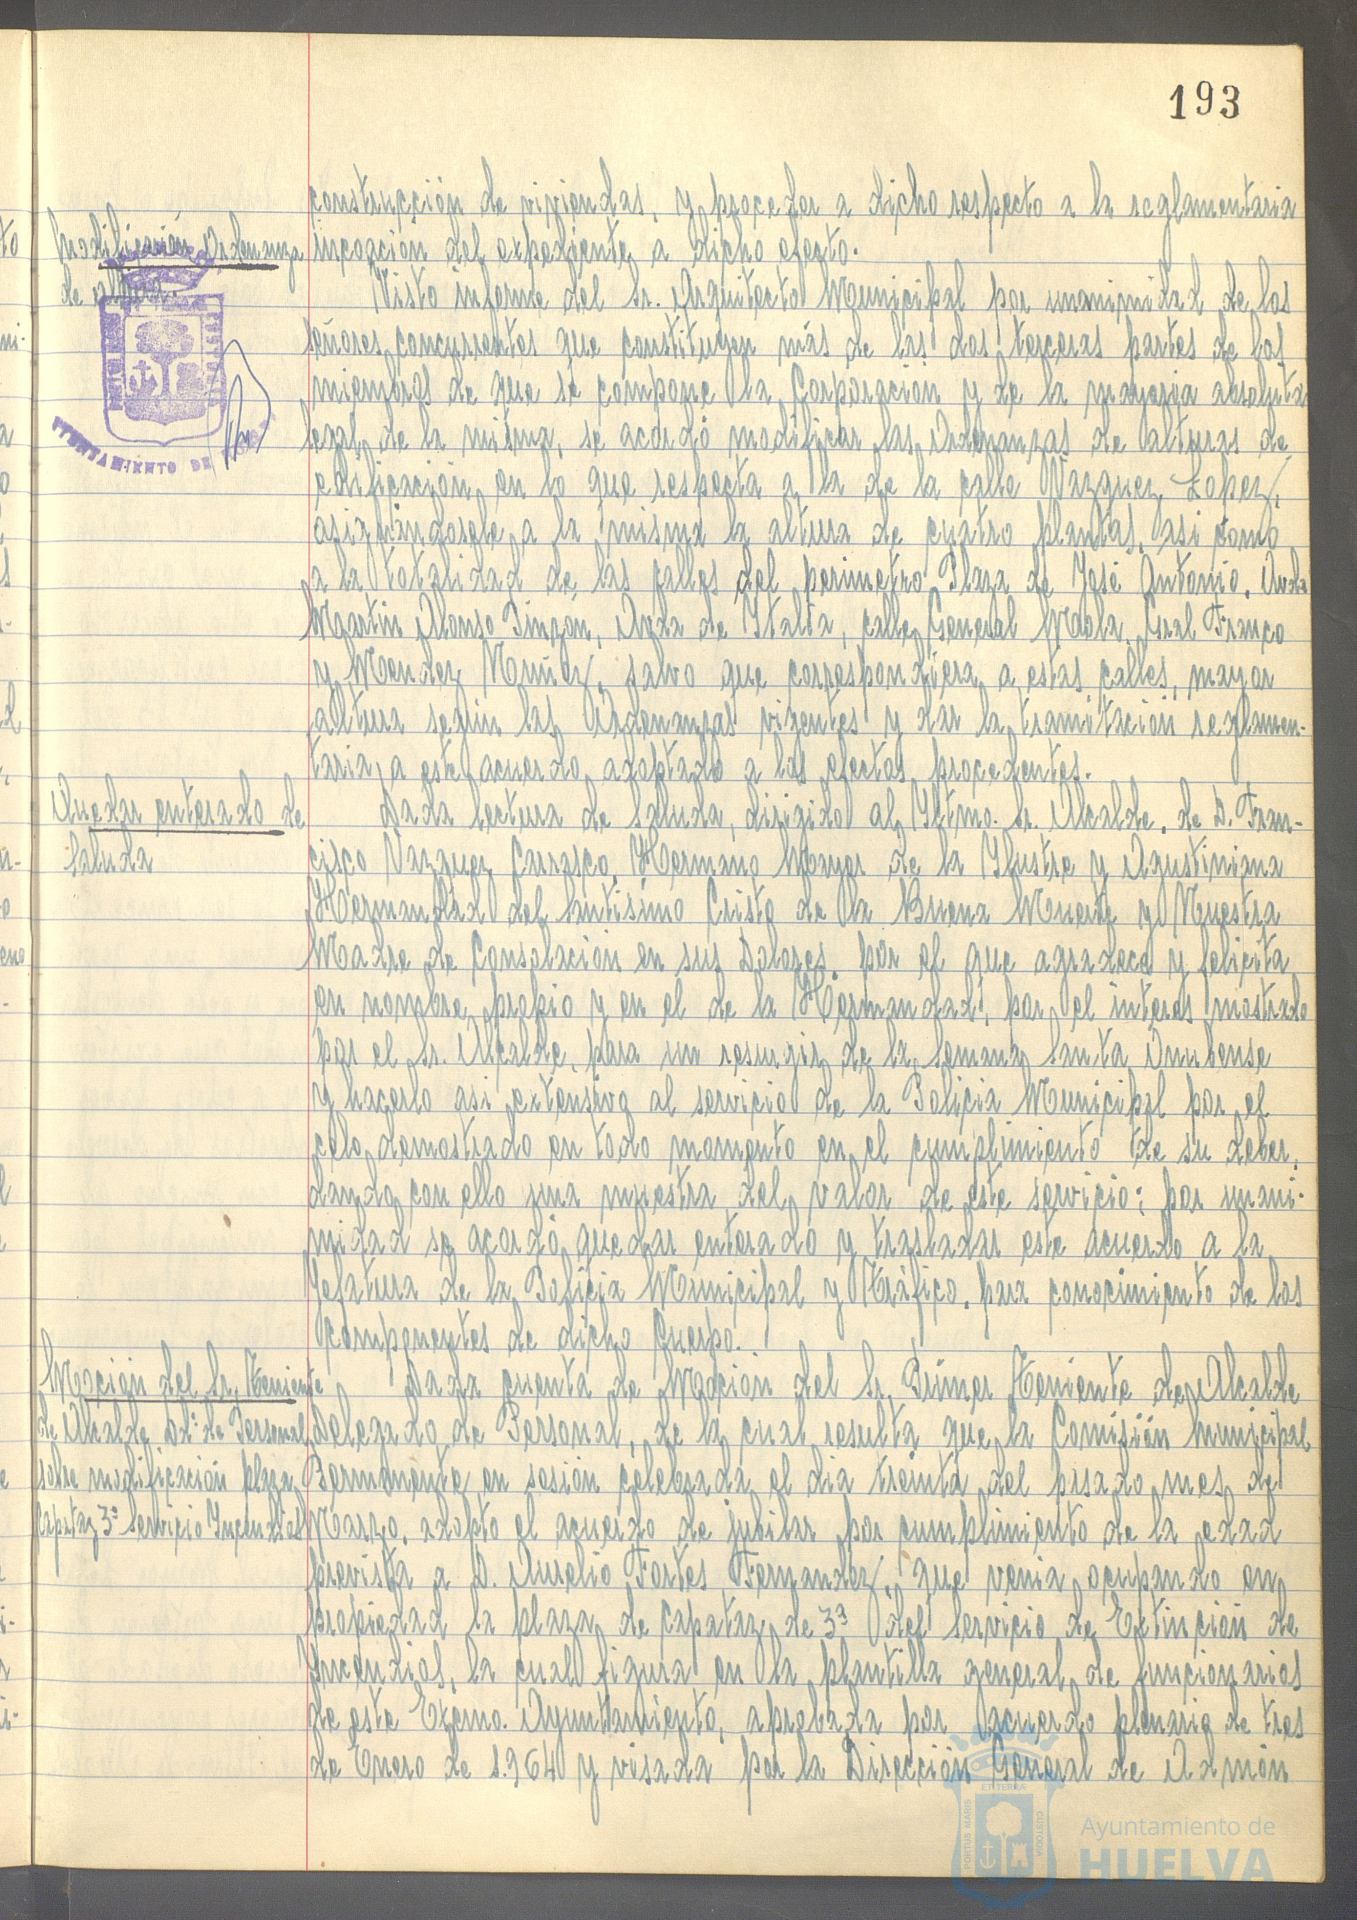 193
construcción de viviendas, y proceder a dicho respecto a la reglamentaria
Modificación Ordenanza
de altura.
incoación del expediente a dicho efecto.
Visto informe del Sr. Arquitecto Municipal por unanimidad de los
señores concurrentes que constituyen más de las dos terceras partes de los
miembros de que se compone la Corporación y de la mayoria absoluta
legal de la misma, se acordó modificar las Ordenanzas de alturas de
edificación en lo que respecta a la de la calle Vazquez Lopez,
asignandosele a la misma la altura de cuatro plantas, asi como
a la totalidad de las calles del perimetro Plaza de José Antonio, Avda
Martin Alonso Pinzon, Avda de Italia, calle General Mola, Gral Franco
y Mendez Nuñez, salvo que correspondiera a estas calles, mayor
altura según las Ordenanzas vigentes y dar la tramitación reglamen-
taria a este acuerdo adoptado a los efectos procedentes.
AYUNTAMIENTO DE
Quedar enterado de
Saluda
Dada lectura de Saluda, dirigido al Iltmo. Sr. Alcalde, de D. Fran-
cisco Vazquez Carrasco, Hermano Mayor de la Ilustre y Agustiniana
Hermandad del Santisimo Cristo de la Buena Muerte y Nuestra
Madre de Consolación en sus Dolores, por el que agradece y felicita
en nombre propio y en el de la Hermandad, por el interes mostrado
por el Sr. Alcalde, para un resurgir de la Semana Santa Onubense
y hacerlo asi extensivo al servicio de la Policia Municipal por el
celo demostrado en todo momento en el cumplimiento de su deber,
dando con ello una muestra del valor de este servicio; por unani-
midad se acordó quedar enterado y trasladar este acuerdo a la
Jefatura de la Policia Municipal y Tráfico, para conocimiento de los
componentes de dicho Cuerpo.
Moción del Sr. Teniente
de Alcalde Dº. de Personal
sobre modificación plaza
Capataz 3ª Servicio Incendios
Dada cuenta de Moción del Sr. Primer Teniente de Alcalde
Delegado de Personal, de la cual resulta que la Comisión Municipal
Permanente en sesión celebrada el dia treinta del pasado mes de
Marzo, adopto el acuerdo de jubilar por cumplimiento de la edad
prevista a D. Aurelio Fortes Fernandez, que venia ocupando en
propiedad la plaza de Capataz de 3ª del Servicio de Extinción de
Incendios, la cual figura en la plantilla general de funcionarios
de este Excmo. Ayuntamiento, aprobada por acuerdo plenario de tres
de Enero de 1.964 y visada por la Dirección General de Admón
PORTUS MARIS ET TERRÆ CUSTODIA
Ayuntamiento de
HUELVA